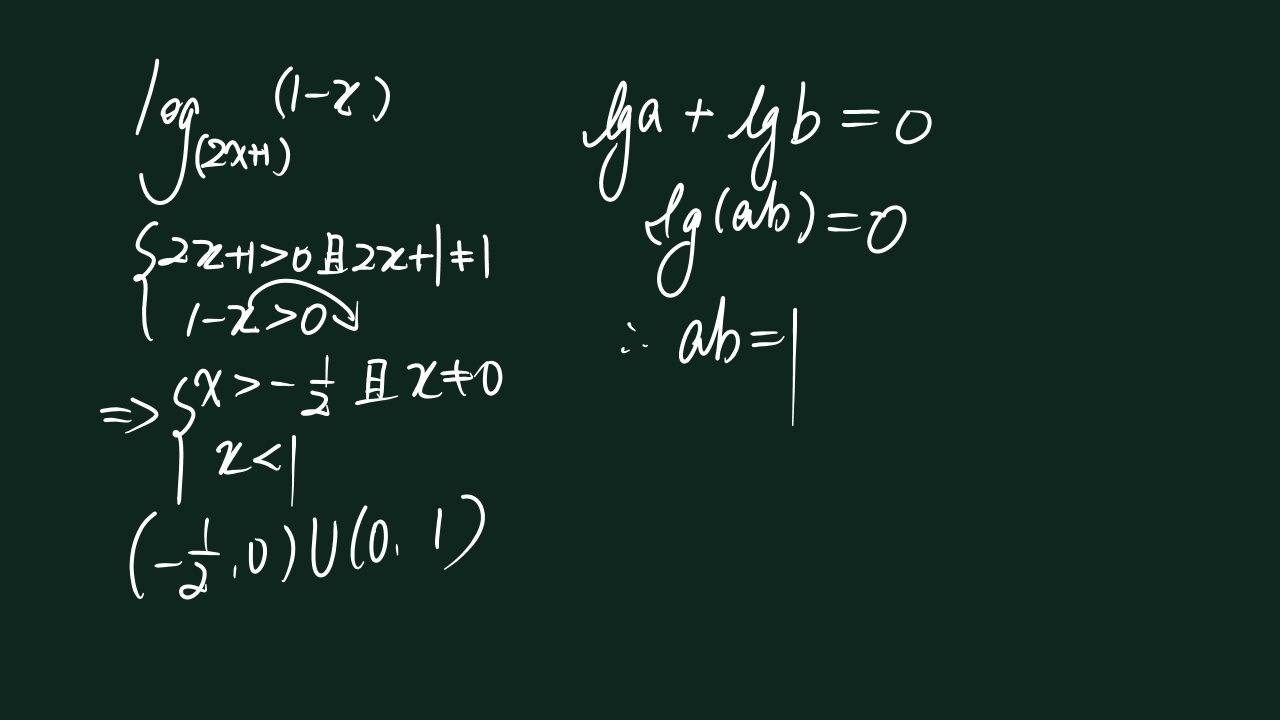 log_(2x+1) (1-x)
{ 2x+1>0且2x+1≠1
1-x>0
=> { x>-1/2 且 x≠0
x<1
(-1/2,0)∪(0,1)
lga+lgb=0
lg(ab)=0
∴ab=1